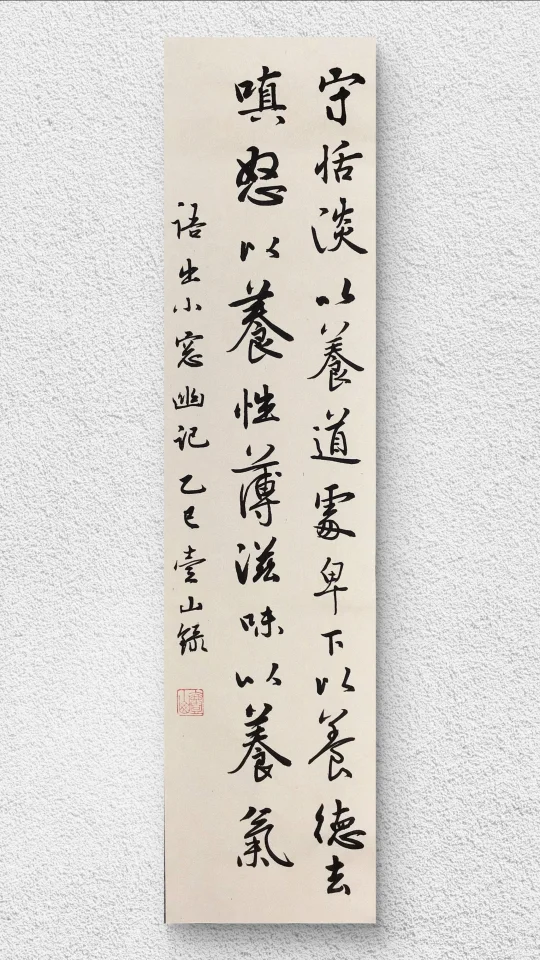 守恬淡以養道處卑下以養德去
嗔怒以養性薄滋味以養氣
语出小窓幽记乙巳壹山録